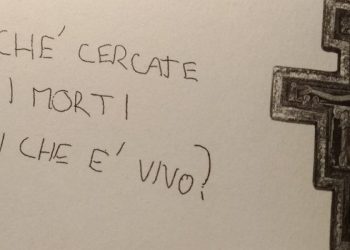 CHE' CERCATE
I MORTI
I CHE E' VIVO?